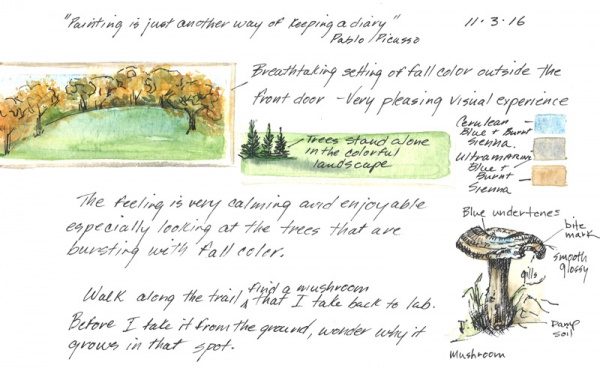 "Painting is just another way of keeping a diary"
Pablo Picasso
11·3·16
Breathtaking setting of fall color outside the
front door - Very pleasing visual experience
Trees stand alone
in the colorful
landscape
Cerulean
Blue + Burnt
Sienna.
Ultramarine
Blue +
Burnt
Sienna
The feeling is very calming and enjoyable
especially looking at the trees that are
bursting with fall color.
Walk along the trail, find a mushroom that I take back to lab.
Before I take it from the ground, wonder why it
grows in that spot.
Blue undertones
bite
mark
smooth
glossy
gills
Damp
soil
mushroom